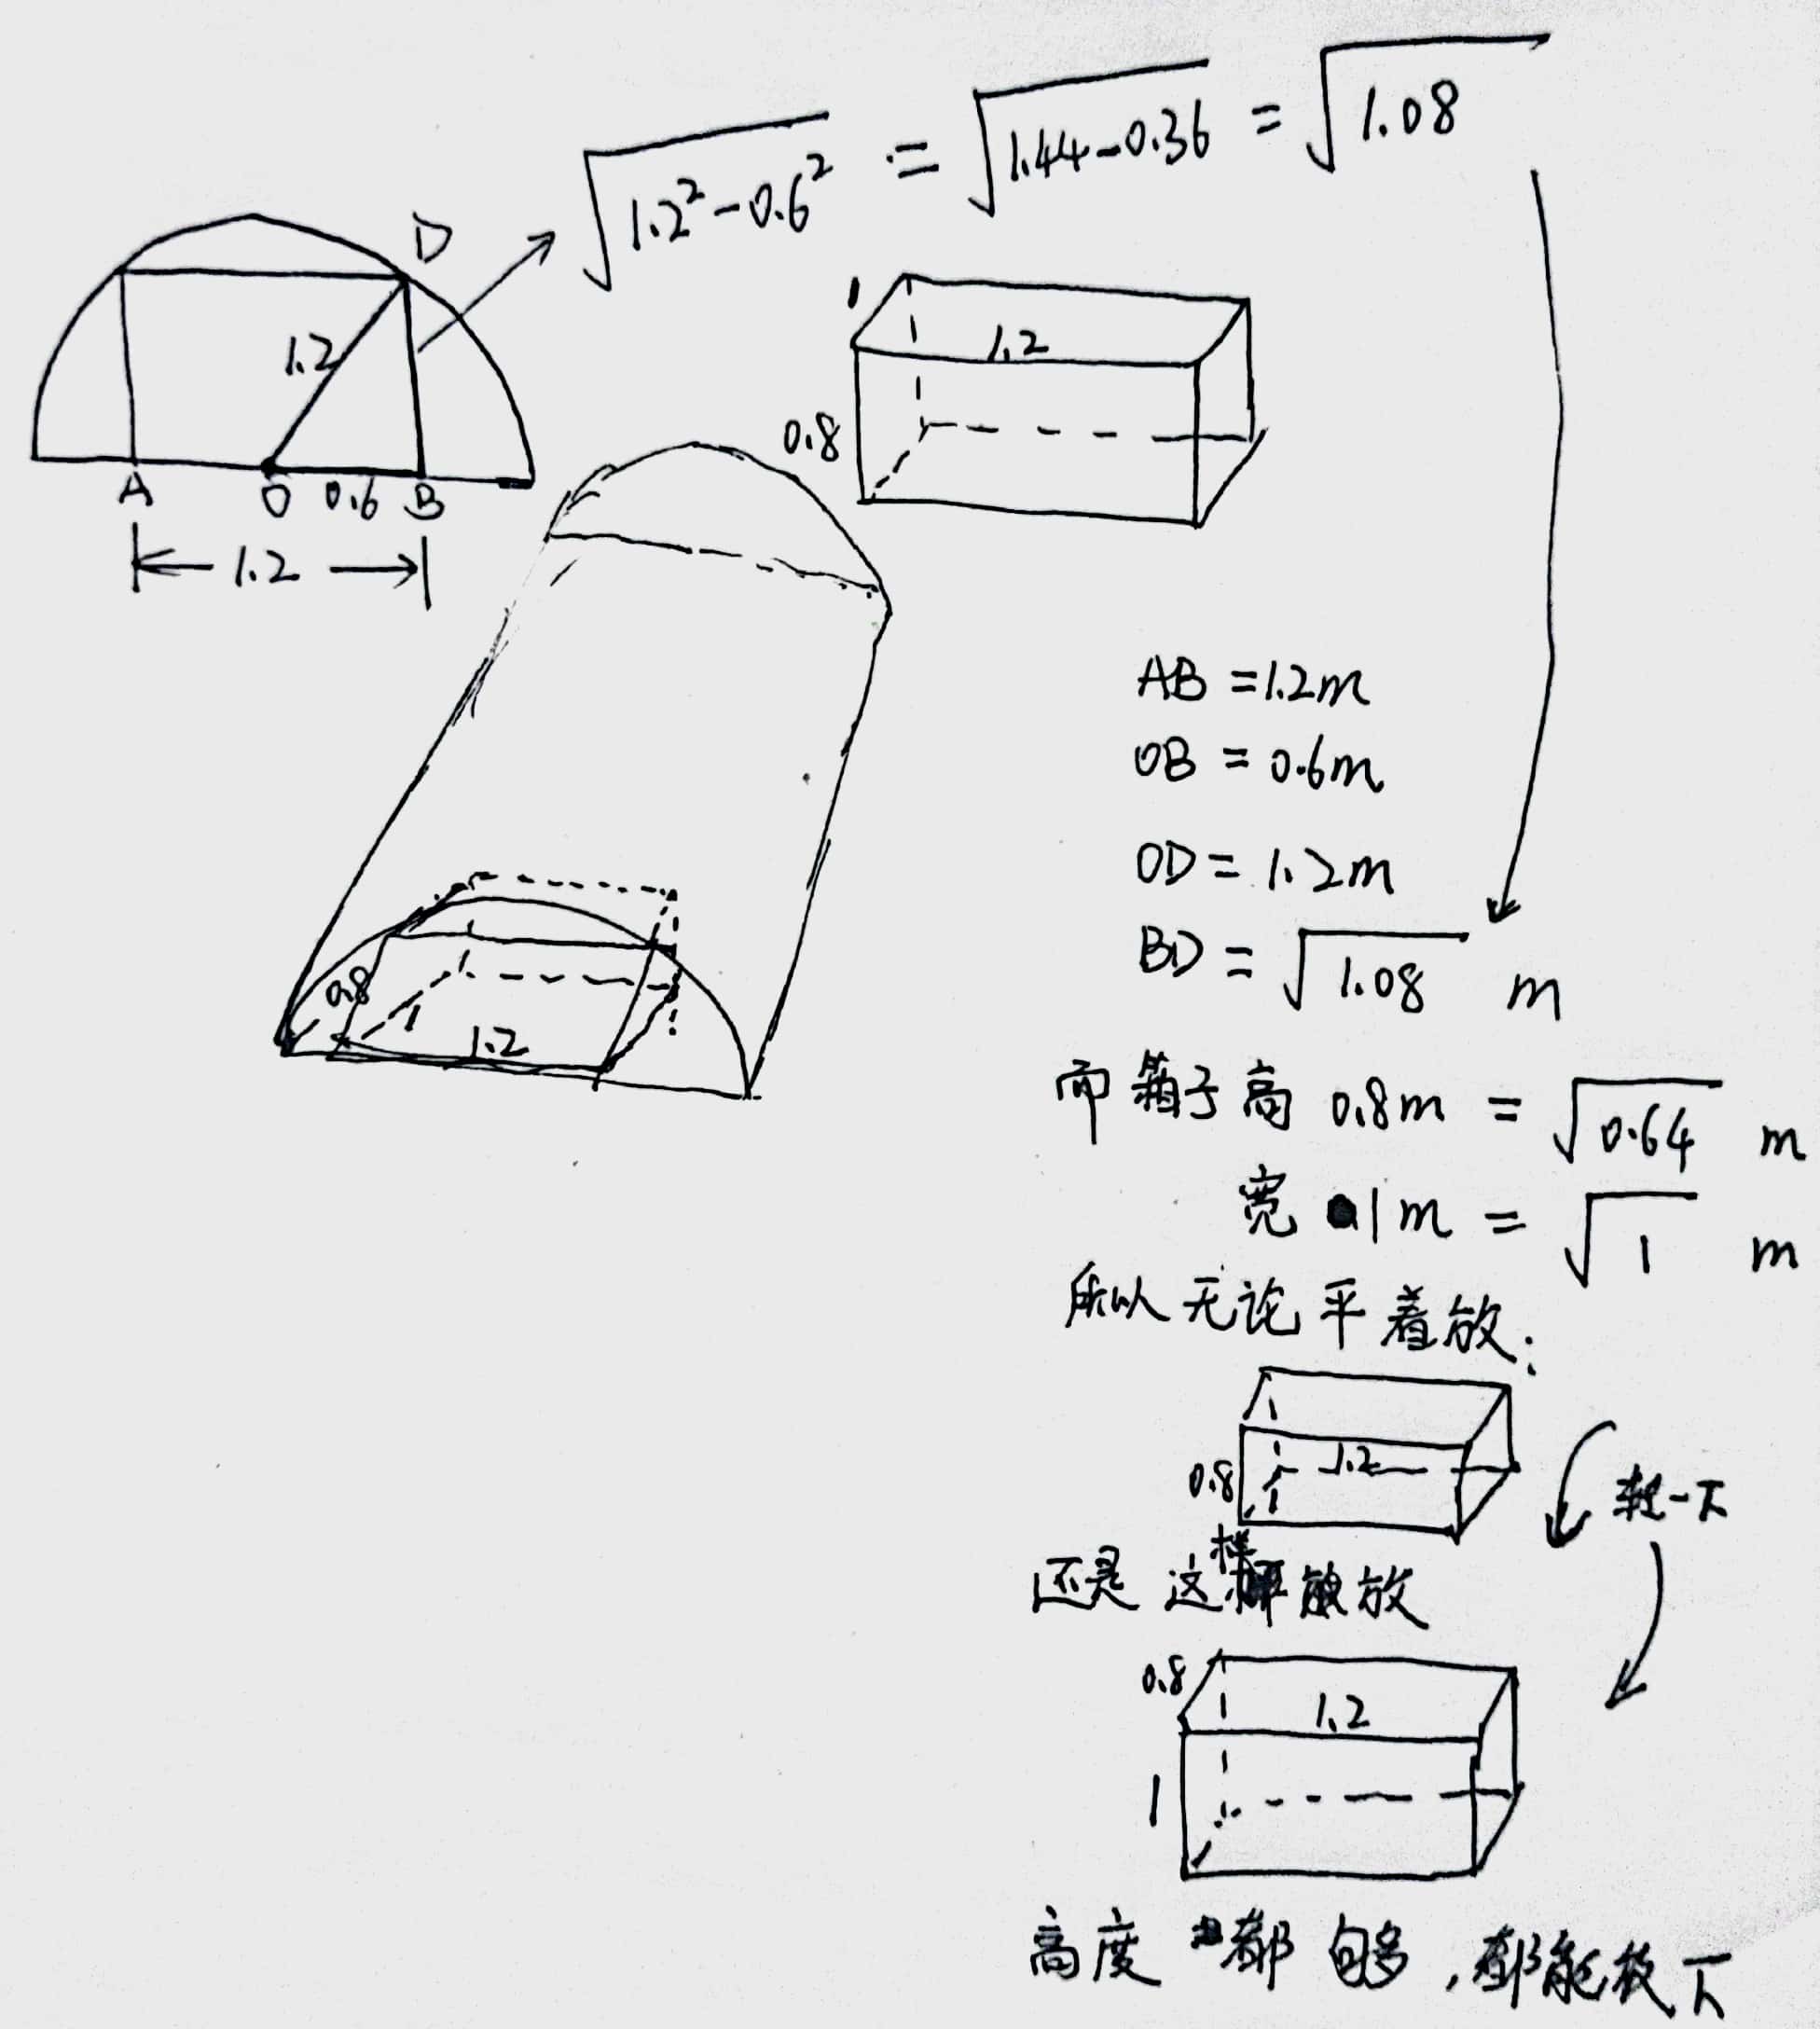 √(1.2²-0.6²) = √(1.44-0.36) = √1.08
D
1.2
A O 0.6 B
1.2
1
1.2
0.8
0.8
1
1.2
AB = 1.2m
OB = 0.6m
OD = 1.2m
BD = √1.08 m
而箱子高 0.8m = √0.64 m
宽 1m = √1 m
所以无论平着放:
1.2
0.8
转一下
还是这样放
0.8
1.2
1
高度都够,都能放下